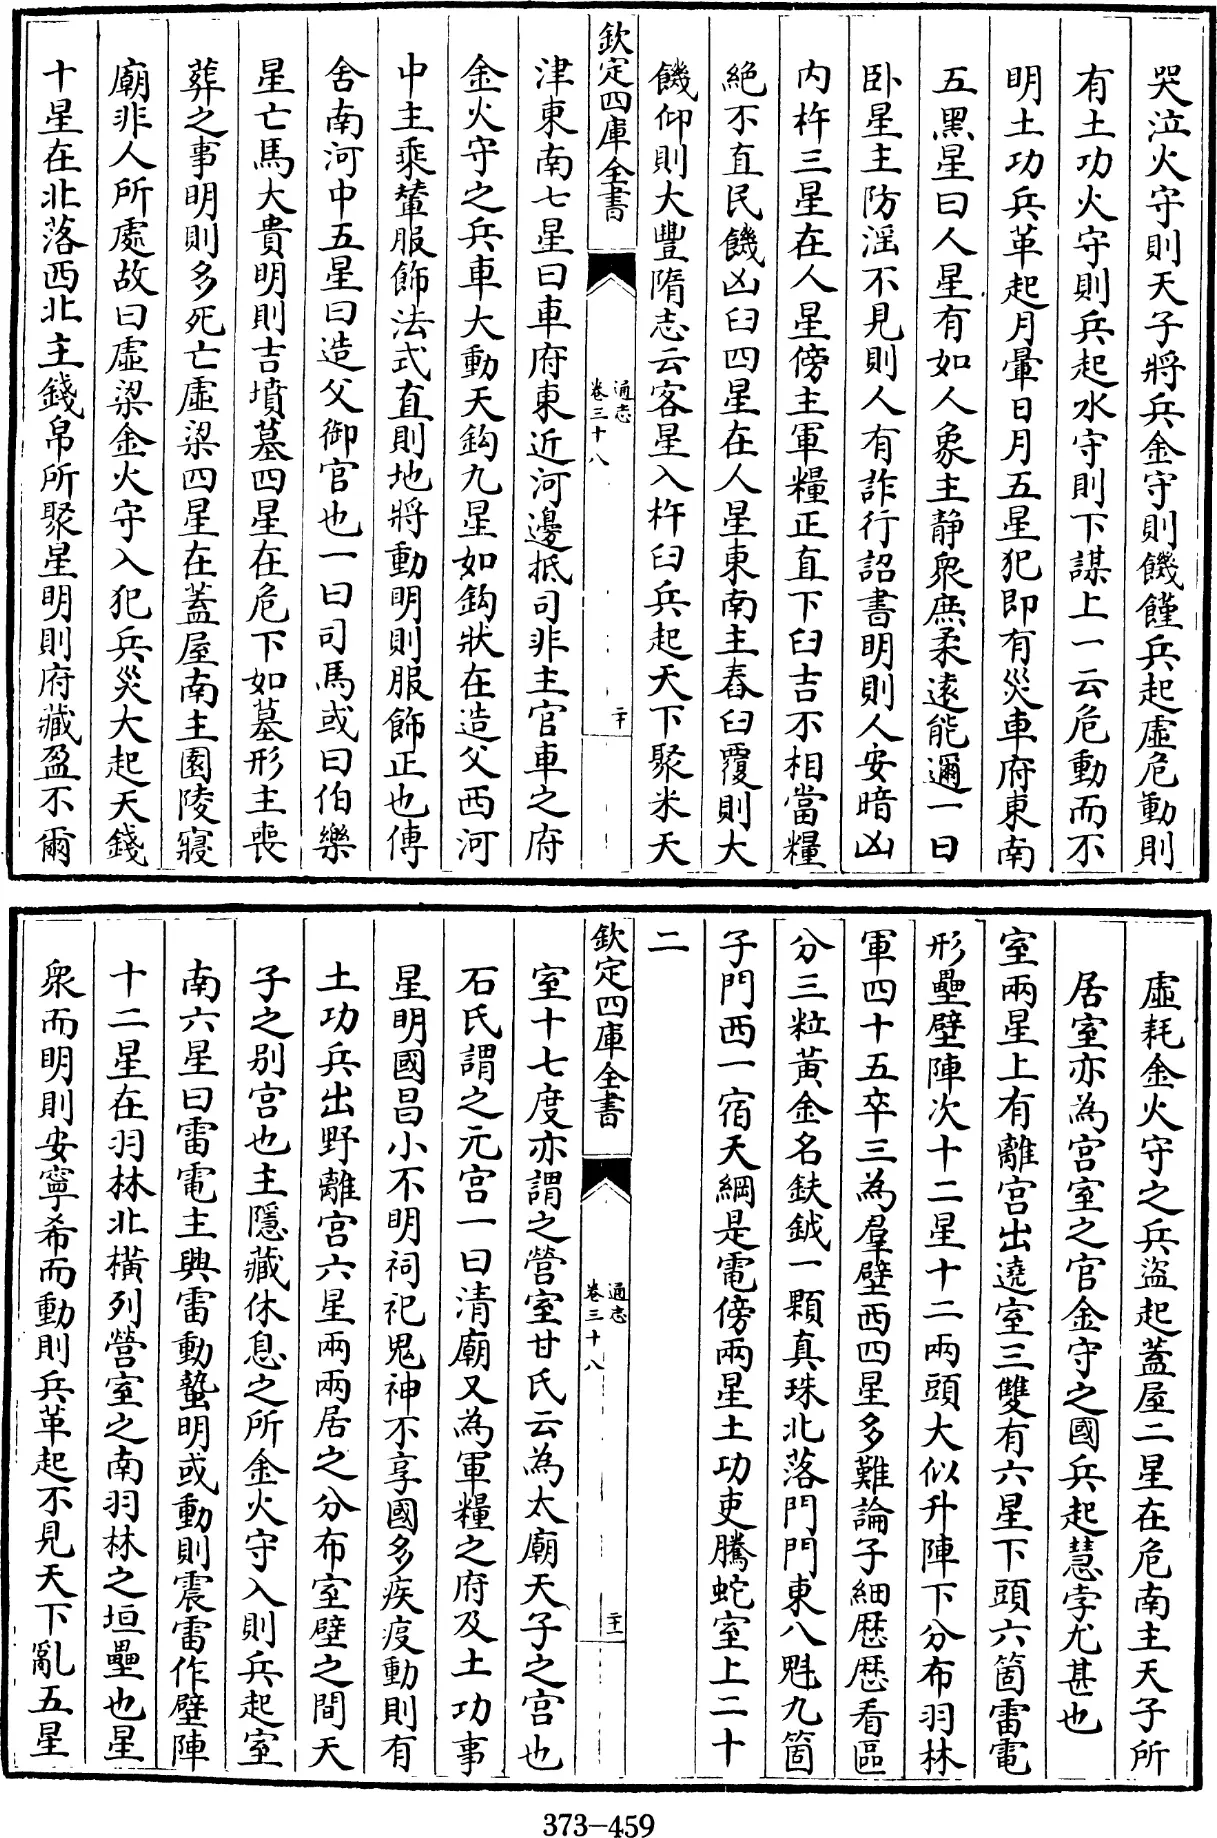 哭泣火守則天子將兵金守則饑饉兵起虛危動則
有土功火守則兵起水守則下謀上一云危動而不
明土功兵革起月暈日月五星犯即有災車府東南
五黑星曰人星有如人象主靜衆庶柔逺能邇一曰
卧星主防淫不見則人有詐行詔書明則人安暗凶
内杵三星在人星傍主軍糧正直下臼吉不相當糧
絶不直民饑凶臼四星在人星東南主舂臼覆則大
饑仰則大豐隋志云客星入杵臼兵起天下聚米天
欽定四庫全書
通志
卷三十八
二十
津東南七星曰車府東近河邊抵司非主官車之府
金火守之兵車大動天鈎九星如鈎狀在造父西河
中主乘輦服飾法式直則地將動明則服飾正也傅
舍南河中五星曰造父御官也一曰司馬或曰伯樂
星亡馬大貴明則吉墳墓四星在危下如墓形主喪
葬之事明則多死亡虛梁四星在蓋屋南主園陵寢
廟非人所處故曰虛梁金火守入犯兵災大起天錢
十星在北落西北主錢帛所聚星明則府藏盈不爾
虛耗金火守之兵盜起蓋屋二星在危南主天子所
居室亦為宫室之官金守之國兵起慧孛尤甚也
室兩星上有離宫出遶室三雙有六星下頭六箇雷電
形壘壁陣次十二星十二兩頭大似升陣下分布羽林
軍四十五卒三為羣壁西四星多難論子細歴歴看區
分三粒黃金名鈇鉞一顆真珠北落門門東八魁九箇
子門西一宿天綱是電傍兩星土功吏騰蛇室上二十
二
欽定四庫全書
通志
卷三十八
二十一
室十七度亦謂之營室甘氏云為太廟天子之宫也
石氏謂之元宫一曰清廟又為軍糧之府及土功事
星明國昌小不明祠祀鬼神不享國多疾疫動則有
土功兵出野離宫六星兩兩居之分布室壁之間天
子之别宫也主隱藏休息之所金火守入則兵起室
南六星曰雷電主興雷動蟄明或動則震雷作壁陣
十二星在羽林北橫列營室之南羽林之垣壘也星
衆而明則安寧希而動則兵革起不見天下亂五星
373-459